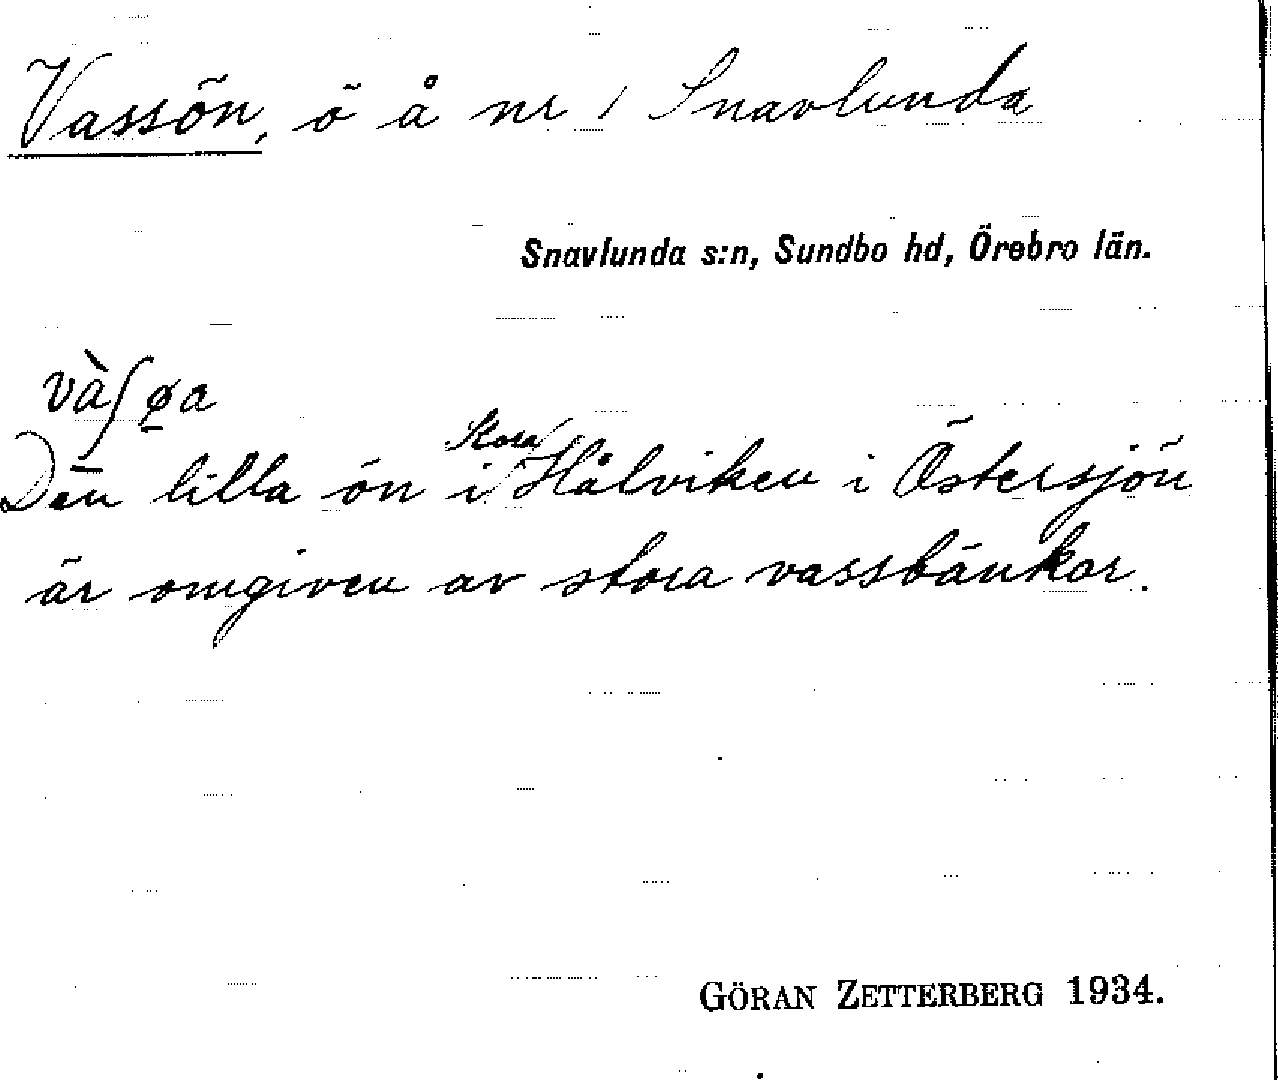 Vassön, ö å nr 1 Snavlunda
Snavlunda s:n, Sundbo hd, Örebro län.
và∫ø̲a
Den lilla ön i Stora Hålviken i Östersjön
är omgiven av stora vassbänkar.
GÖRAN ZETTERBERG 1934.